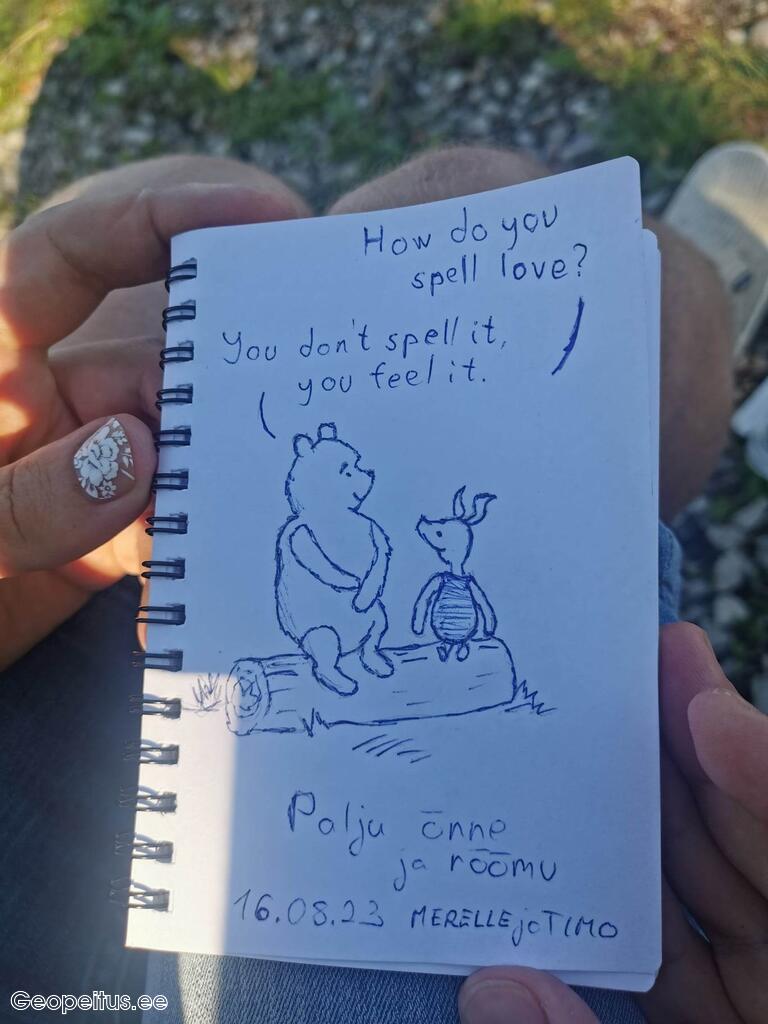 How do you
spell love?
You don't spell it,
you feel it.
Palju õnne
ja rõõmu
16.08.23 MERELLE ja TIMO
Geopeitus.ee